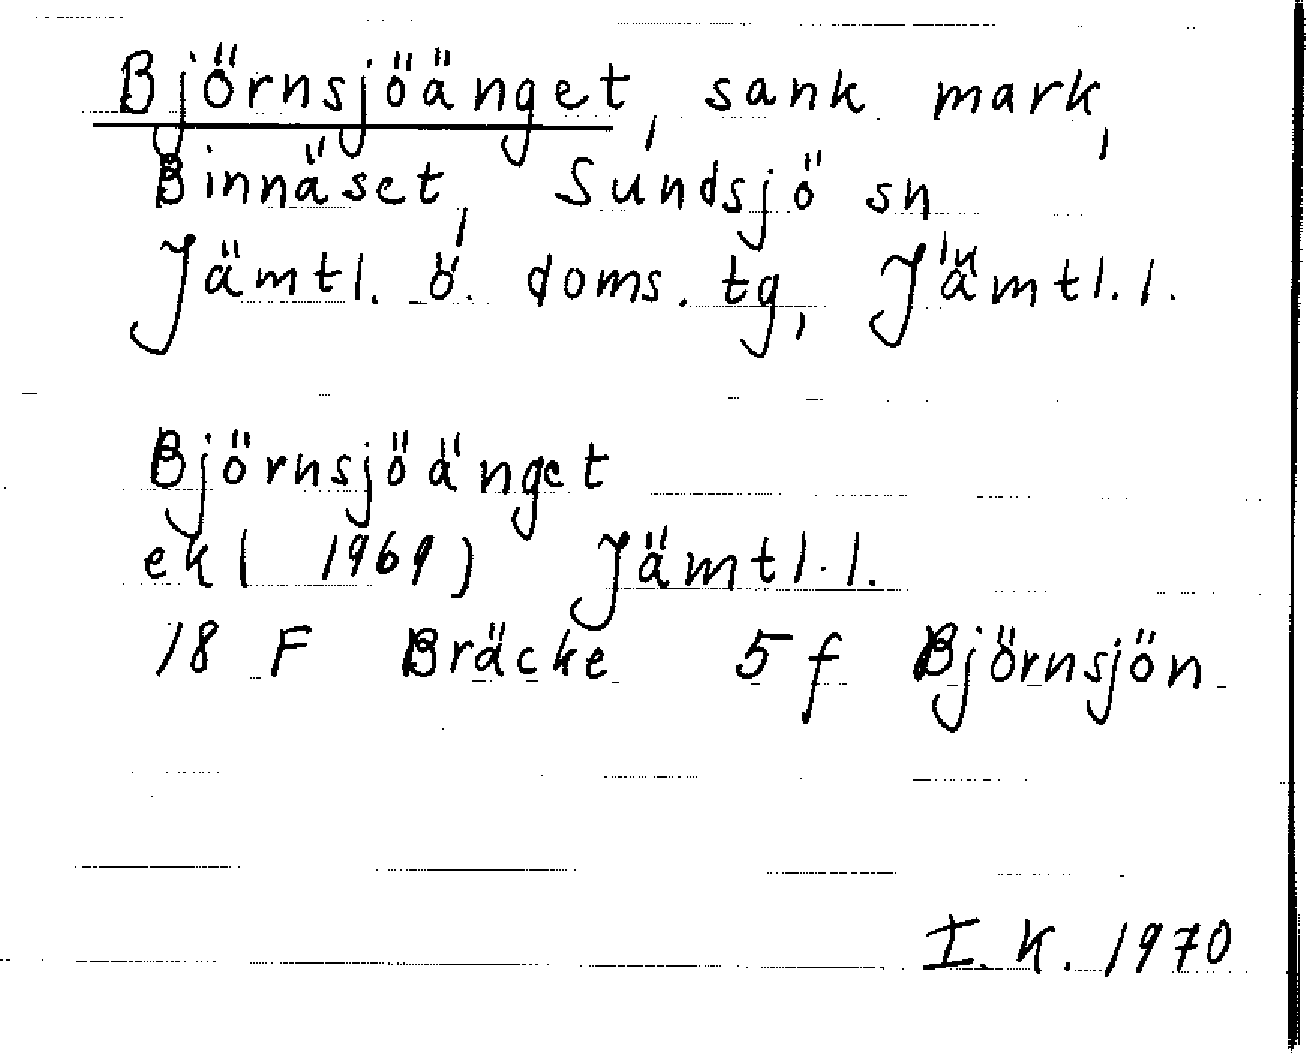 Björnsjöänget, sank mark,
Binnäset, Sundsjö sn
Jämtl. ö. doms. tg, Jämtl. l.
Björnsjöänget
ek ( 1969 ) Jämtl. l.
18 F Bräcke 5 f Björnsjön
I. K. 1970